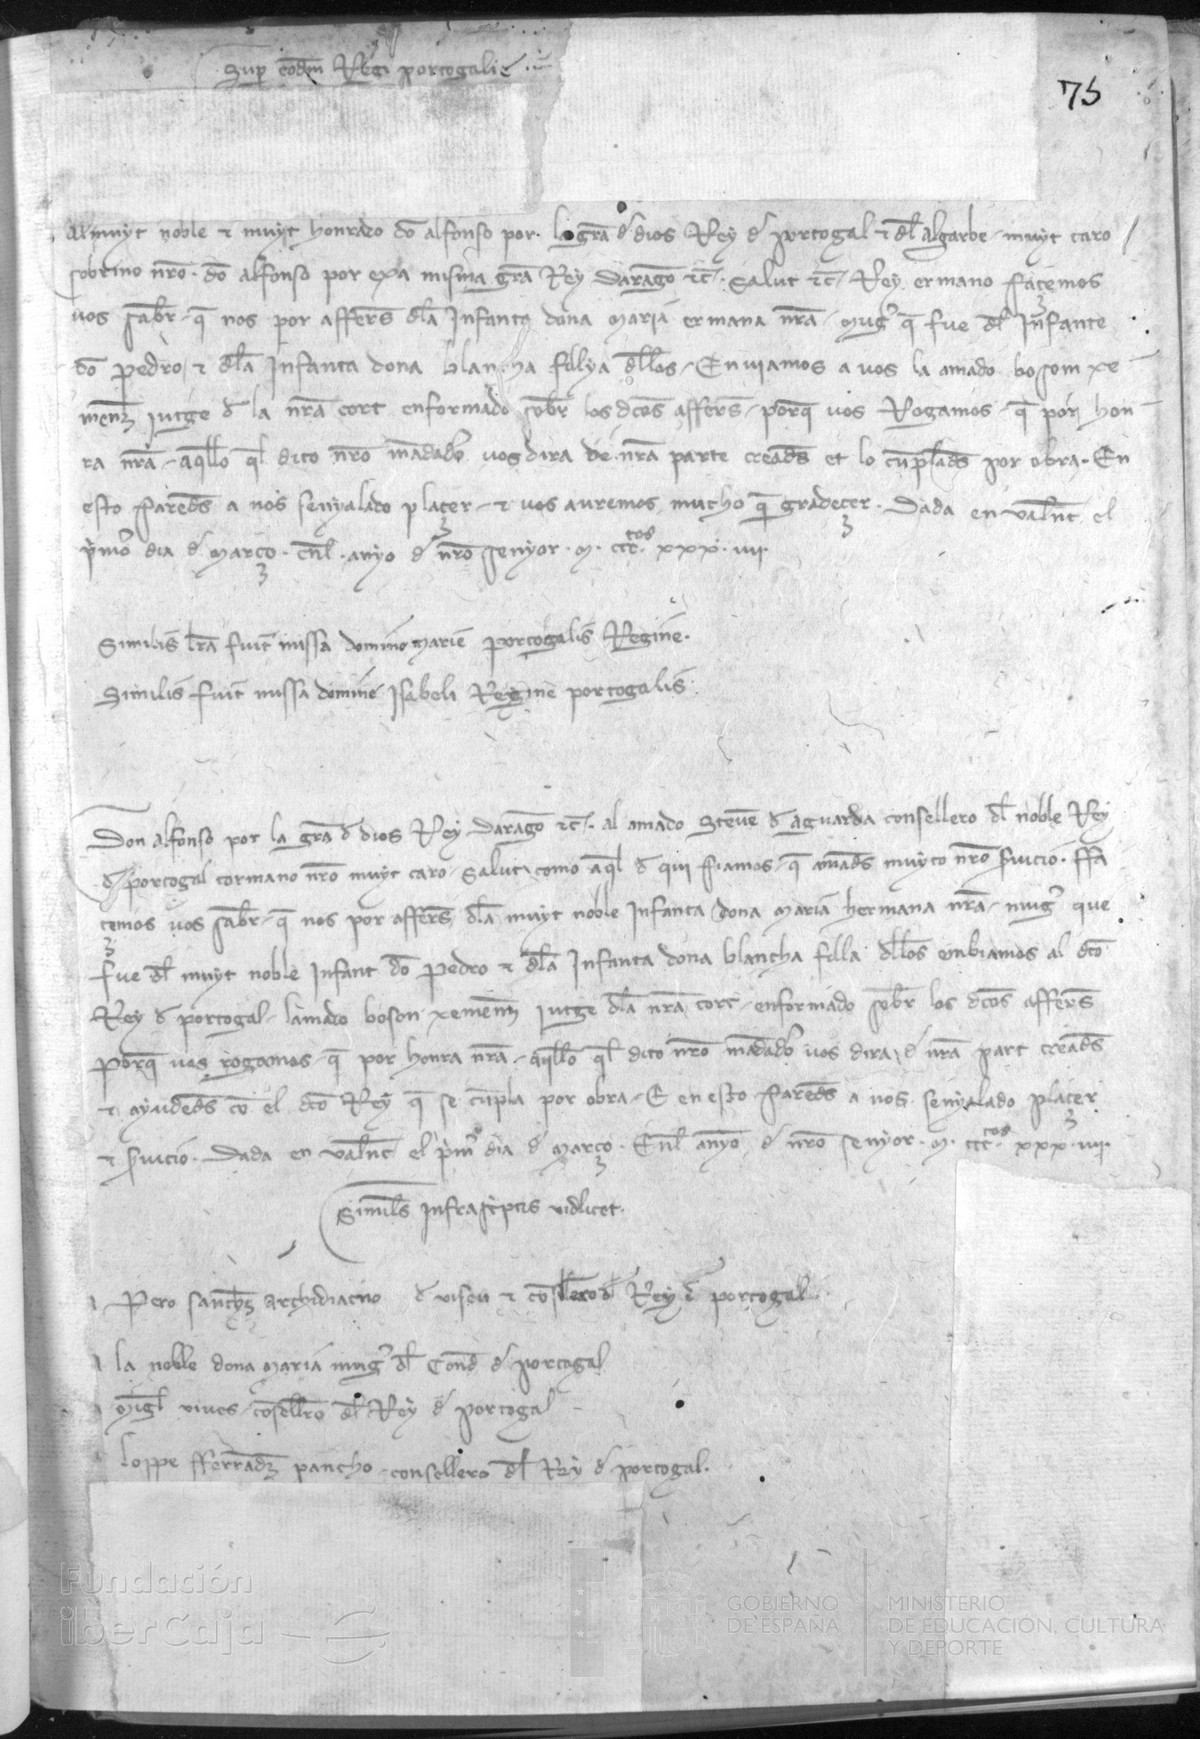 Sup eodm Regi portogalie
75
Al muyt noble et muyt honrado do alfonso por la gra d dios Rey d portogal et dl algarbe muyt caro
sobrino nro do alfonso por exa misma gra Rey darago etc Salut etc Rey ermano façemos
vos saber q nos por affers dla Infanta dona maria ermana nra muger q fue dl Infante
do pedro et dla Infanta dona blancha fillya dllos Enviamos a vos la amado boson xe
menz jutge d la nra cort enformado sobr los dcos affers porq vos Rogamos q por hon
ra nra aqllo ql dito nro madado vos dira de nra parte creads et lo cumplads por obra En
esto fareds a nos senyalado plaçer et vos auremos mucho q gradeçer Dada en valnc el
pmo dia d março enl anyo d nro senyor m ccc tos xxx iiii
Similis lra fuit missa domine marie portogalis Regine
Similis fuit missa domine Isabeli Regine portogalis
Don alfonso por la gra d dios Rey darago etc al amado Steue d aguarda consellero dl noble Rey
d portogal cormano nro muyt caro Salut como aql d qui fiamos q amads muyto nro seruicio ffa
çemos vos saber q nos por affers dla muyt noble Infanta dona maria hermana nra muger que
fue dl muyt noble Infant do Pedro et dla Infanta dona blancha filla dllos embiamos al dco
Rey d portogal lamado boson xemenz jutge dla nra cort enformado sobr los dcos affers
porq vos rogamos q por honra nra aqllo ql dito nro madado vos dira d nra part creads
et ayudeds co el dco Rey q se cumpla por obra E en esto fareds a nos senyalado plaçer
et seruicio Dada en valnc el pmo dia d março Enl anyo d nro senyor m ccc tos xxx iiii
Similes infrascriptis vidlicet
Pero sanchz archidiacno d viseu et cosellero dl Rey d portogal
la noble dona maria muger dl Cond d portogal
Migl viues consellero dl Rey d portogal
loppe fferradz pancho consellero dl Rey d portogal
Fundación
iberCaja
GOBIERNO
DE ESPAÑA
MINISTERIO
DE EDUCACIÓN, CULTURA
Y DEPORTE